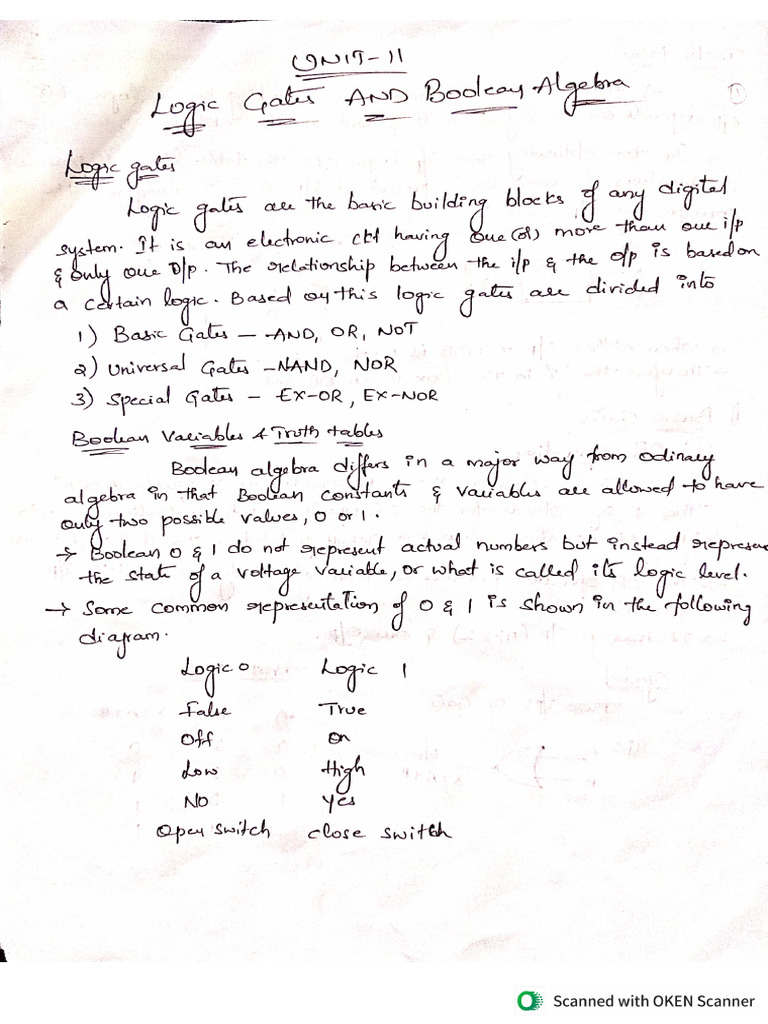 UNIT-II
Logic Gates AND Boolean Algebra
1
Logic gates
Logic gates are the basic building blocks of any digital
system. It is an electronic ckt having one (or) more than one i/p
& only one O/p. The relationship between the i/p & the o/p is based on
a certain logic. Based on this logic gates are divided into
1) Basic Gates – AND, OR, NOT
2) Universal Gates – NAND, NOR
3) Special Gates – EX-OR, EX-NOR
Boolean Variables & Truth tables
Boolean algebra differs in a major way from odinary
algebra in that Boolean constants & variables are allowed to have
only two possible values, 0 or 1.
→ Boolean 0 & 1 do not represent actual numbers but instead represen
the state of a voltage variable, or what is called its logic level.
→ Some common representation of 0 & 1 is shown in the following
diagram.
Logic 0 Logic 1
False True
Off on
Low High
No Yes
Open switch close switch
Scanned with OKEN Scanner